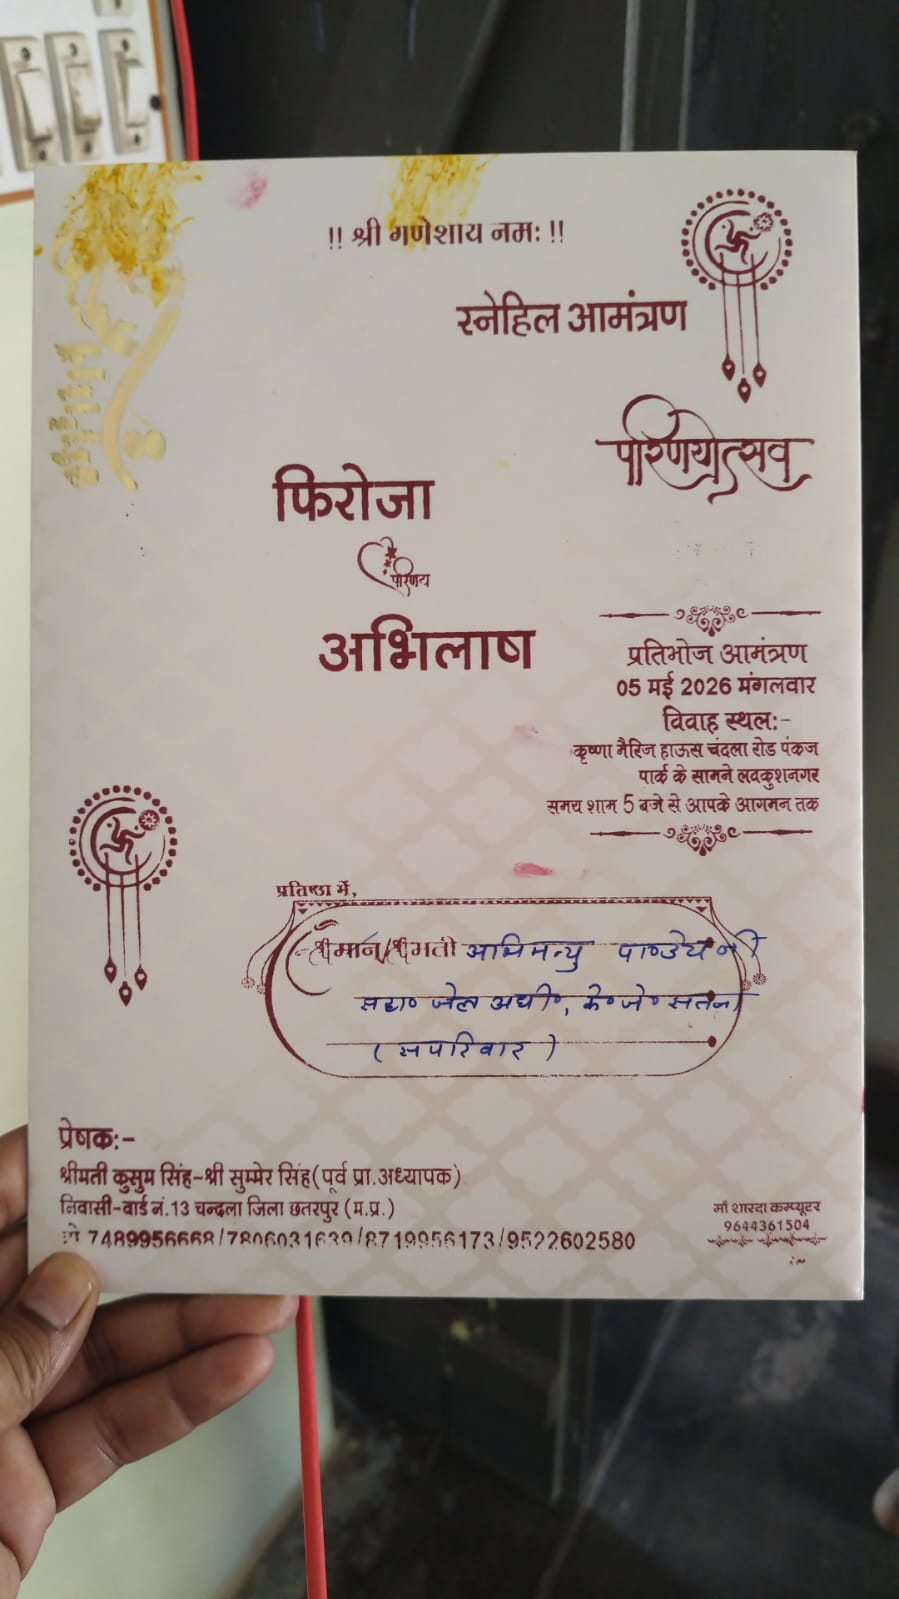 !! श्री गणेशाय नमः !!
स्नेहिल आमंत्रण
परिणयोत्सव
फिरोजा
परिणय
अभिलाष
प्रतिभोज आमंत्रण
05 मई 2026 मंगलवार
विवाह स्थल:-
कृष्णा मैरिज हाऊस चंदला रोड पंकज
पार्क के सामने लवकुशनगर
समय शाम 5 बजे से आपके आगमन तक
प्रतिष्ठा में,
श्रीमान/श्रीमती अभिमन्यु पाण्डेय जी
सहा० जेल अधी०, के०जे० सतना
( सपरिवार )
प्रेषक:-
श्रीमती कुसुम सिंह-श्री सुम्मेर सिंह(पूर्व प्रा.अध्यापक)
निवासी-वार्ड नं.13 चन्दला जिला छतरपुर (म.प्र.)
मो 7489956668/7806031639/8719956173/9522602580
माँ शारदा कम्प्यूटर
9644361504